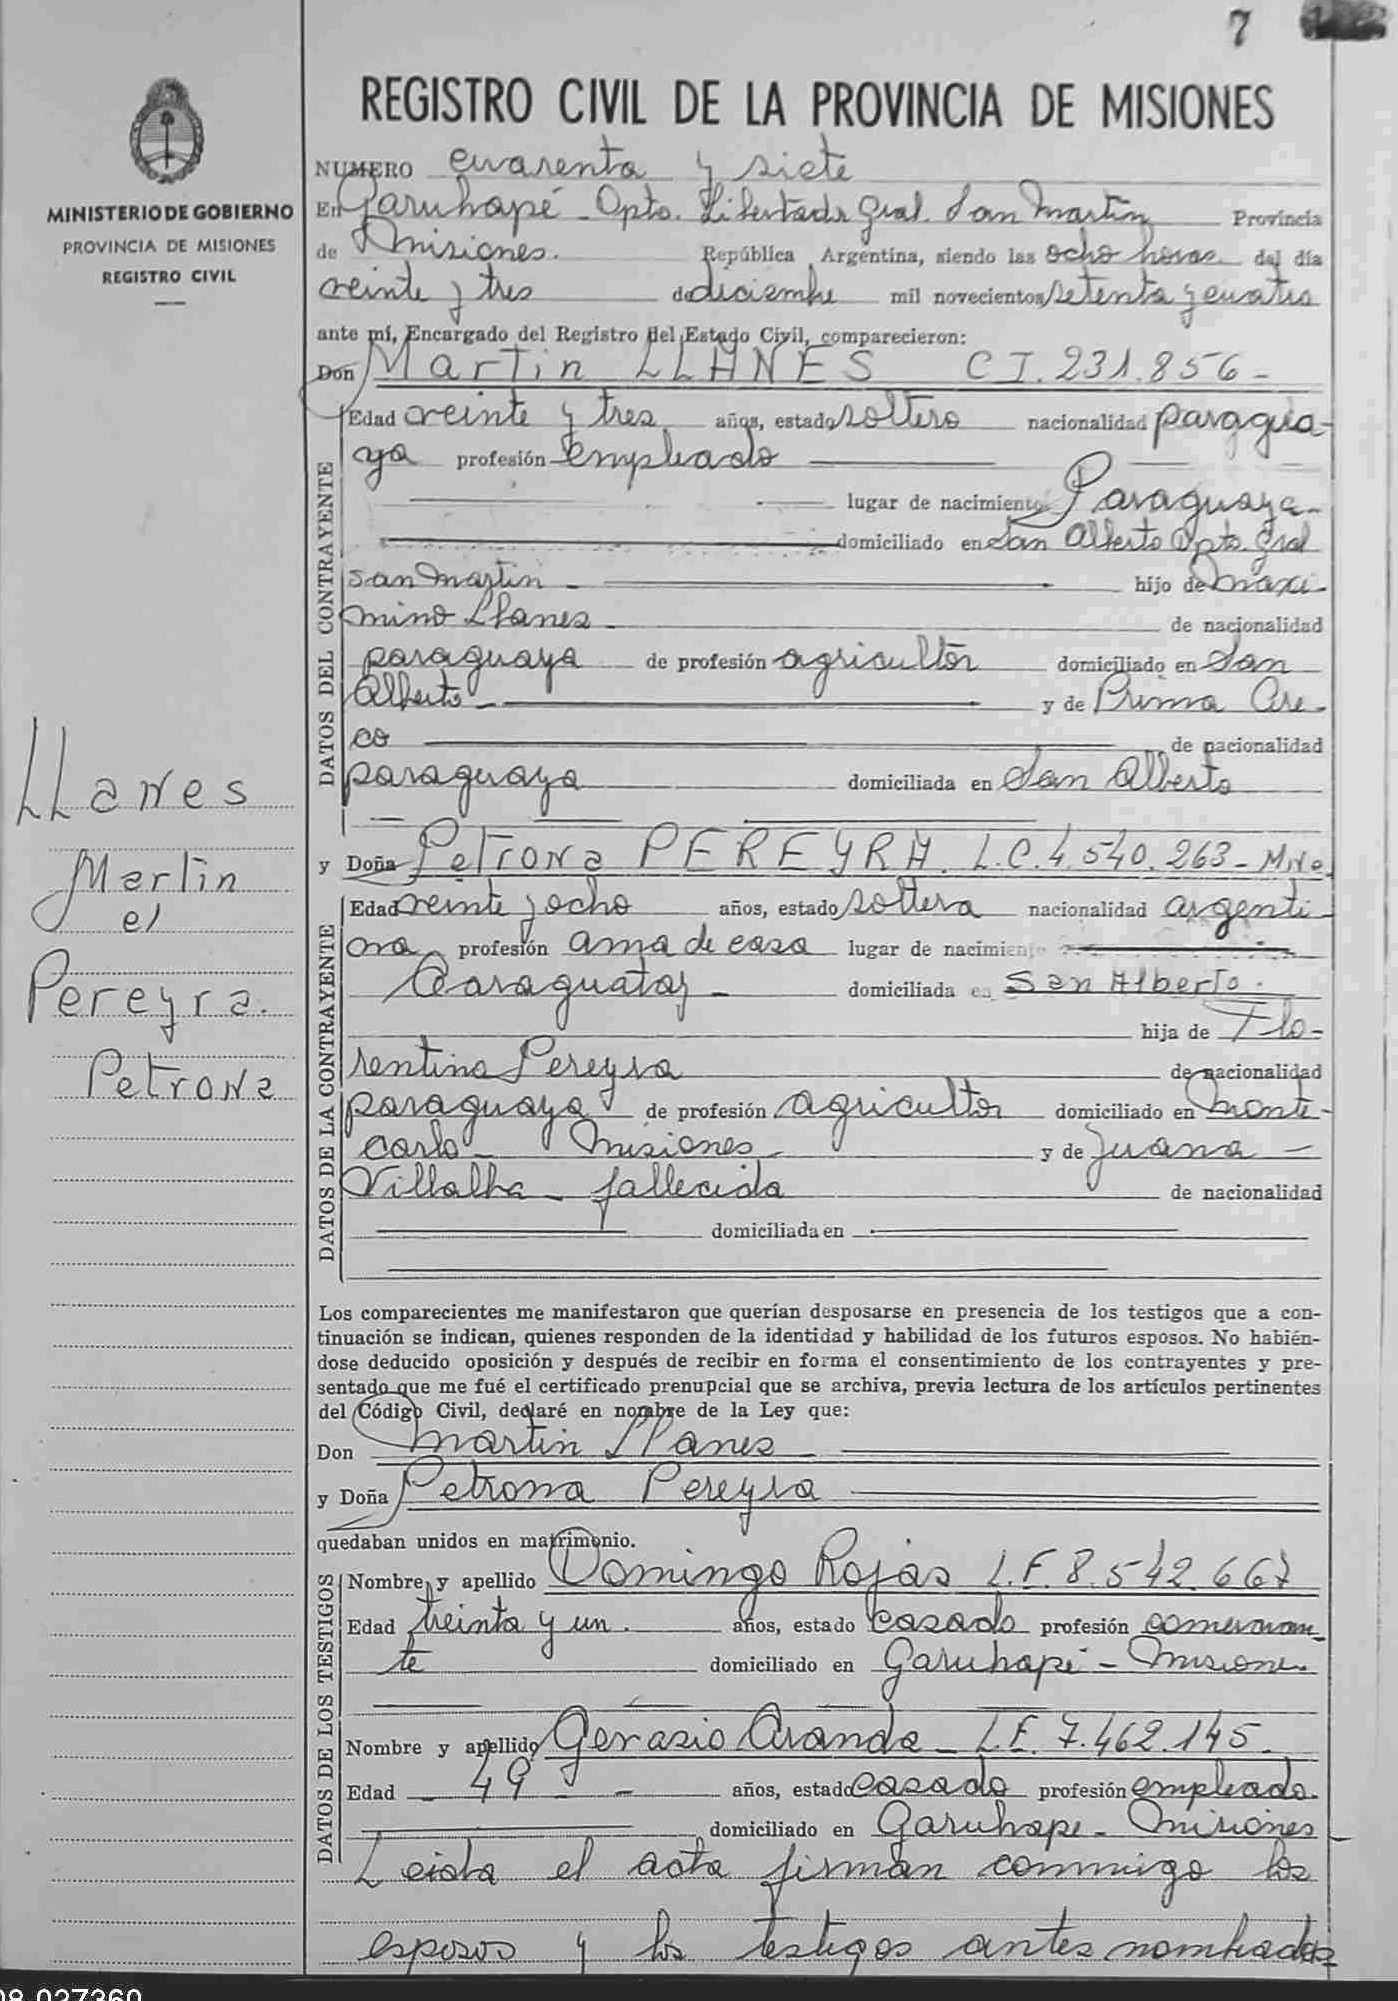 7
REGISTRO CIVIL DE LA PROVINCIA DE MISIONES
MINISTERIO DE GOBIERNO
PROVINCIA DE MISIONES
REGISTRO CIVIL
NUMERO cuarenta y siete
En Garuhapé - Dpto. Libertador Gral. San Martín Provincia
de Misiones. República Argentina, siendo las ocho horas del día
veinte y tres de diciembre mil novecientos setenta y cuatro
ante mí, Encargado del Registro del Estado Civil, comparecieron:
Don Martin LLANES CI. 231.856 -
DATOS DEL CONTRAYENTE
Edad veinte y tres años, estado soltero nacionalidad paragua-
ya profesión empleado
lugar de nacimiento Paraguaya -
domiciliado en San Alberto Dpto. Gral
San Martin - hijo de Maxi-
mino Llanes - de nacionalidad
paraguaya de profesión agricultor domiciliado en San
Alberto - y de Prima Are-
co de nacionalidad
paraguaya domiciliada en San Alberto
y Doña Petrona PEREYRA. L.C. 4.540.263 - Mnes
DATOS DE LA CONTRAYENTE
Edad veinte y ocho años, estado soltera nacionalidad argenti
na profesión ama de casa lugar de nacimiento
Caraguatay - domiciliada en San Alberto.
hija de Flo-
rentino Pereyra de nacionalidad
paraguaya de profesión agricultor domiciliado en Monte-
carlo - Misiones - y de Juana -
Villalba - fallecida de nacionalidad
domiciliada en
Llanes
Martin
el
Pereyra.
Petrona
Los comparecientes me manifestaron que querían desposarse en presencia de los testigos que a con-
tinuación se indican, quienes responden de la identidad y habilidad de los futuros esposos. No habién-
dose deducido oposición y después de recibir en forma el consentimiento de los contrayentes y pre-
sentado que me fué el certificado prenupcial que se archiva, previa lectura de los artículos pertinentes
del Código Civil, declaré en nombre de la Ley que:
Don Martin Llanes
y Doña Petrona Pereyra
quedaban unidos en matrimonio.
DATOS DE LOS TESTIGOS
Nombre y apellido Domingo Rojas L.E. 8.542.667
Edad treinta y un. años, estado casado profesión comercian
te domiciliado en Garuhapé - Misiones
Nombre y apellido Gervasio Aranda - L.E. 7.462.145.
Edad - 49 - - años, estado casado profesión empleado.
domiciliado en Garuhape - Misiones
Leida el acta firman conmigo los
esposos y los testigos antes nombrados
98.027360